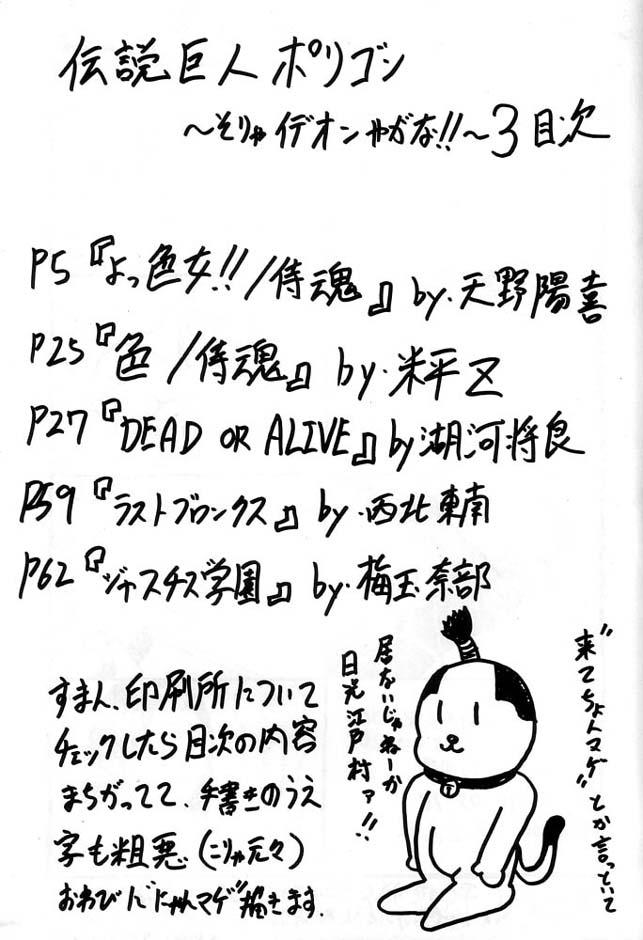 伝説巨人ポリゴン
〜そりゃイデオンやがな!!〜3目次
P5『よっ色女!!/侍魂』by.天野陽喜
P25『色/侍魂』by.米平Z
P27『DEAD OR ALIVE』by湖河将良
P59『ラストブロンクス』by.西北東南
P62『ジャスチス学園』by.梅玉奈部
すまん、印刷所について
チェックしたら目次の内容
まちがってて、手書きのうえ
字も粗悪(こりゃ元々)
おわびに"にゃんマゲ"描きます.
"来てちょんマゲ"とか言っといて
居ないじゃねーか
日光江戸村ァ!!